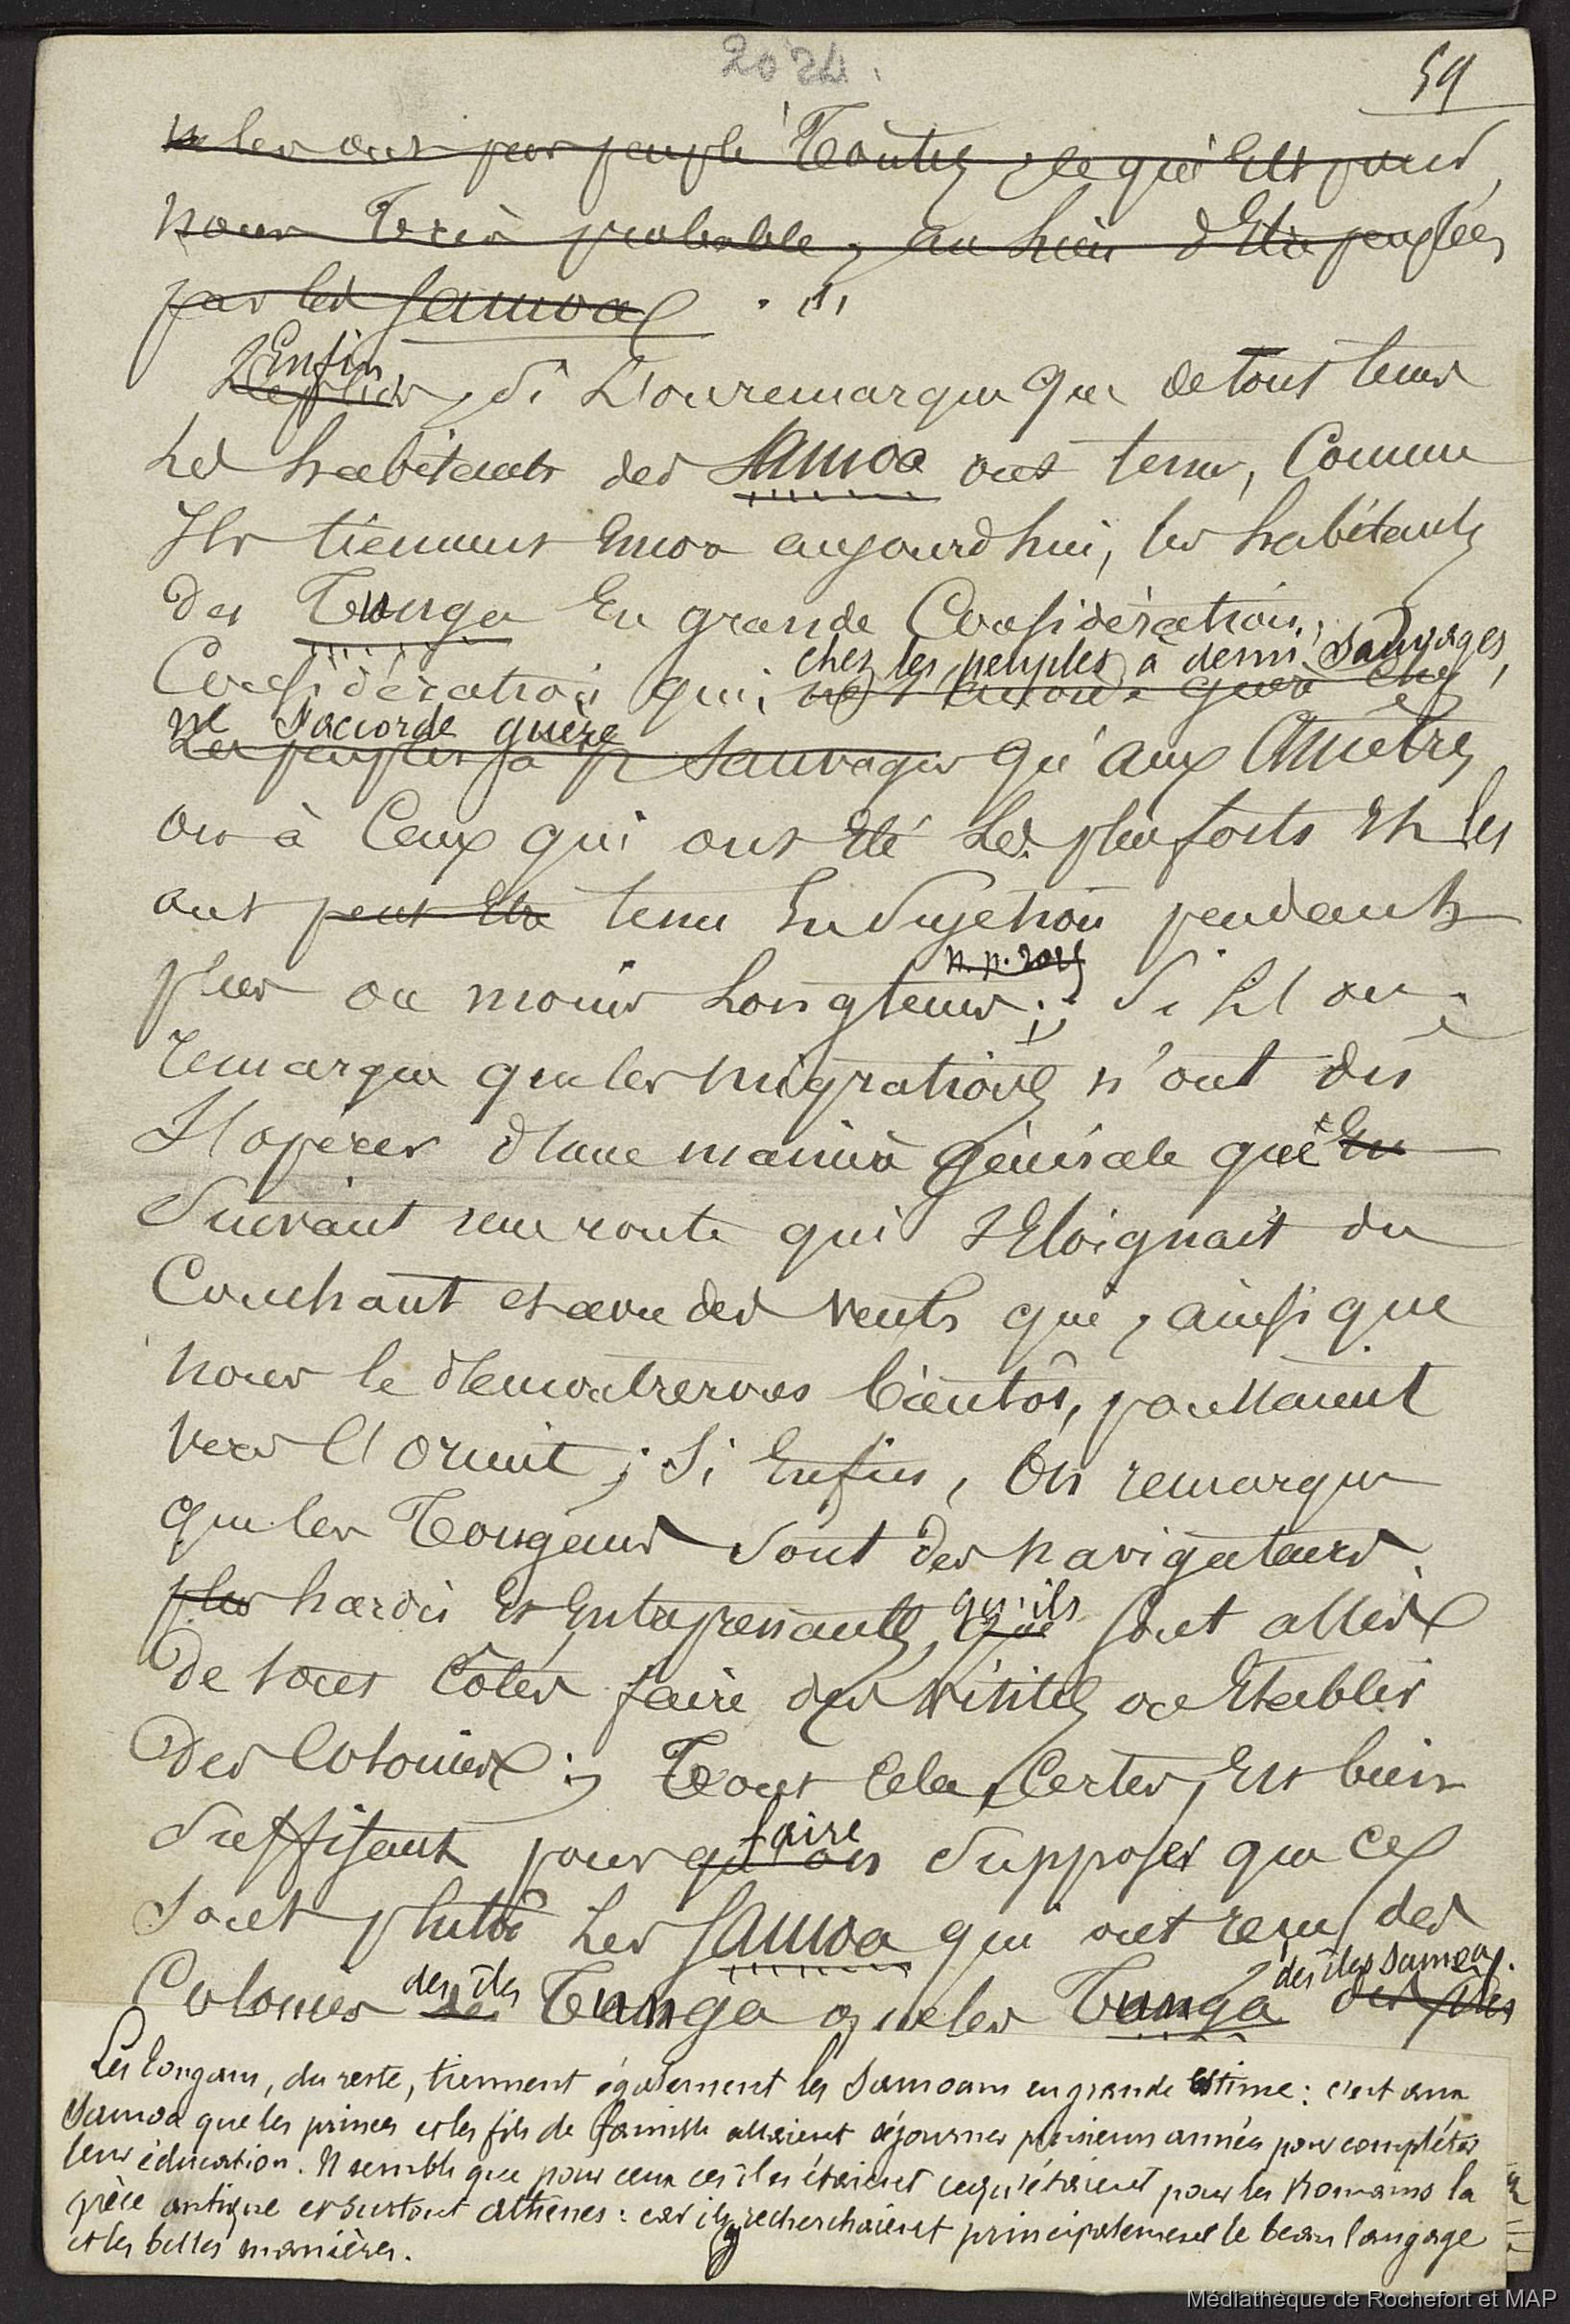 2024.
59
ne les ont pas peuplé Toutes, ce qui est peu
nous Très probable, au lieu d'Etre peuplées
par les Samoa.
Enfin, Si L'on remarque Que de tout tems
Les habitants des Samoa ont tenu, Comme
Ils tiennent Encore aujourd'hui, les habitants
des Tunga En grande Considération,
chez les peuples à demi Sauvages,
Considération qui, ne s'accorde guère chez
ne s'accorde guère
Les peuples à 1/2 Sauvages qu'aux Ancêtres
ou à Ceux qui ont Eté Les plus forts Et les
ont peut Etre tenu En Sujetion pendant
n.p. 2025
plus ou moins Longtems; Si L'on
remarque que les migrations n'ont dû
S'opérer d'une manière Générale qu'En
Suivant une route qui S'Eloignait du
Couchant et avec des Vents qui, ainsi que
nous le démontrerons bientôt, poussaient
vers L'orient; Si Enfin, On remarque
que les Tongans Sont des navigateurs
plus hardis Et Entreprenants, que qu'ils Sont allés
De tous Côtés faire des Visites ou Etablir
Des Colonies; Tout Cela, Certes, Est bien
Suffisant pour qu'on faire Supposer que ce
Sont plutôt Les Samoa qui ont reçu des
Colonies de des îles Tunga que les Tunga des îles Samoa.
Les Tongans, du reste, tiennent également les Samoans en grande Estime: c'est aux
Samoa que les princes et les fils de famille allaient séjourner plusieurs années pour compléter
leur éducation. Il semble que pour eux ces îles étaient ce qu'étaient pour les Romains la
grèce antique et surtout Athènes: car ils y recherchaient principalement le beau langage
et les belles manières.
Médiathèque de Rochefort et MAP